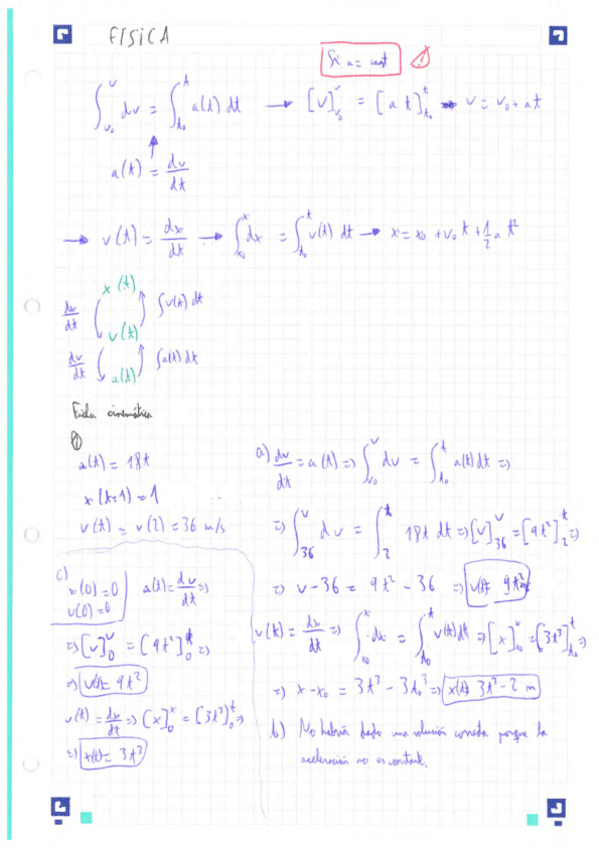 FISICA
Si a = const
∫_{v₀}^{v} dv = ∫_{t₀}^{t} a(t) dt → [v]_{v₀}^{v} = [a t]_{t₀}^{t} → v = v₀ + at
a(t) = dv/dt
→ v(t) = dx/dt → ∫_{x₀}^{x} dx = ∫_{t₀}^{t} v(t) dt → x = x₀ + v₀ t + 1/2 a t²
x(t)
dx/dt ∫v(t) dt
v(t)
dv/dt ∫a(t) dt
a(t)
Ficha cinemática
①
a(t) = 18t
x(t=1) = 1
v(t) = v(2) = 36 m/s
a) dv/dt = a(t) => ∫_{v₀}^{v} dv = ∫_{t₀}^{t} a(t) dt =>
=> ∫_{36}^{v} dv = ∫_{2}^{t} 18t dt => [v]_{36}^{v} = [9t²]_{2}^{t} =>
=> v - 36 = 9t² - 36 => v(t) = 9t²
v(t) = dx/dt => ∫_{x₀}^{x} dx = ∫_{t₀}^{t} v(t) dt => [x]_{x₀}^{x} = [3t³]_{t₀}^{t} =>
=> x - x₀ = 3t³ - 3t₀³ => x(t) = 3t³ - 2 m
b) No habría dado una solución correcta porque la
aceleración no es constante.
c)
x(0) = 0
v(0) = 0
a(t) = dv/dt =>
=> [v]_{0}^{v} = [9t²]_{0}^{t} =>
=> v(t) = 9t²
v(t) = dx/dt => [x]_{0}^{x} = [3t³]_{0}^{t} =>
=> x(t) = 3t³